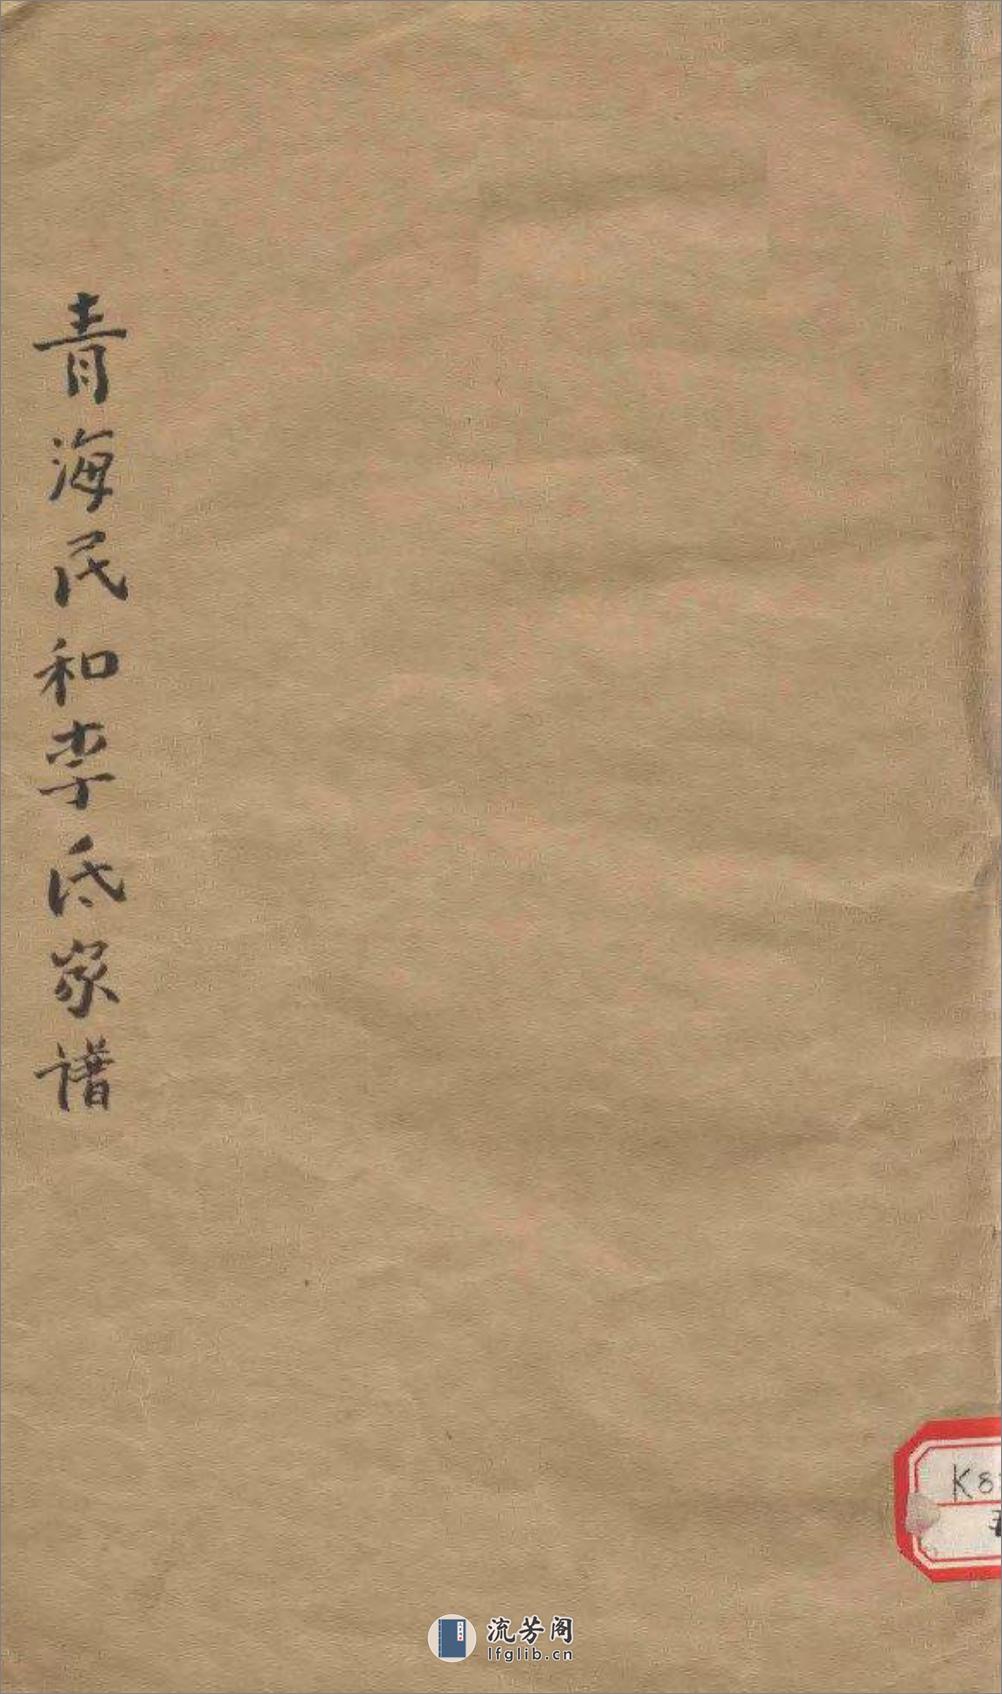 青海民和李氏家谱
K8
流芳阁
lfglib.cn